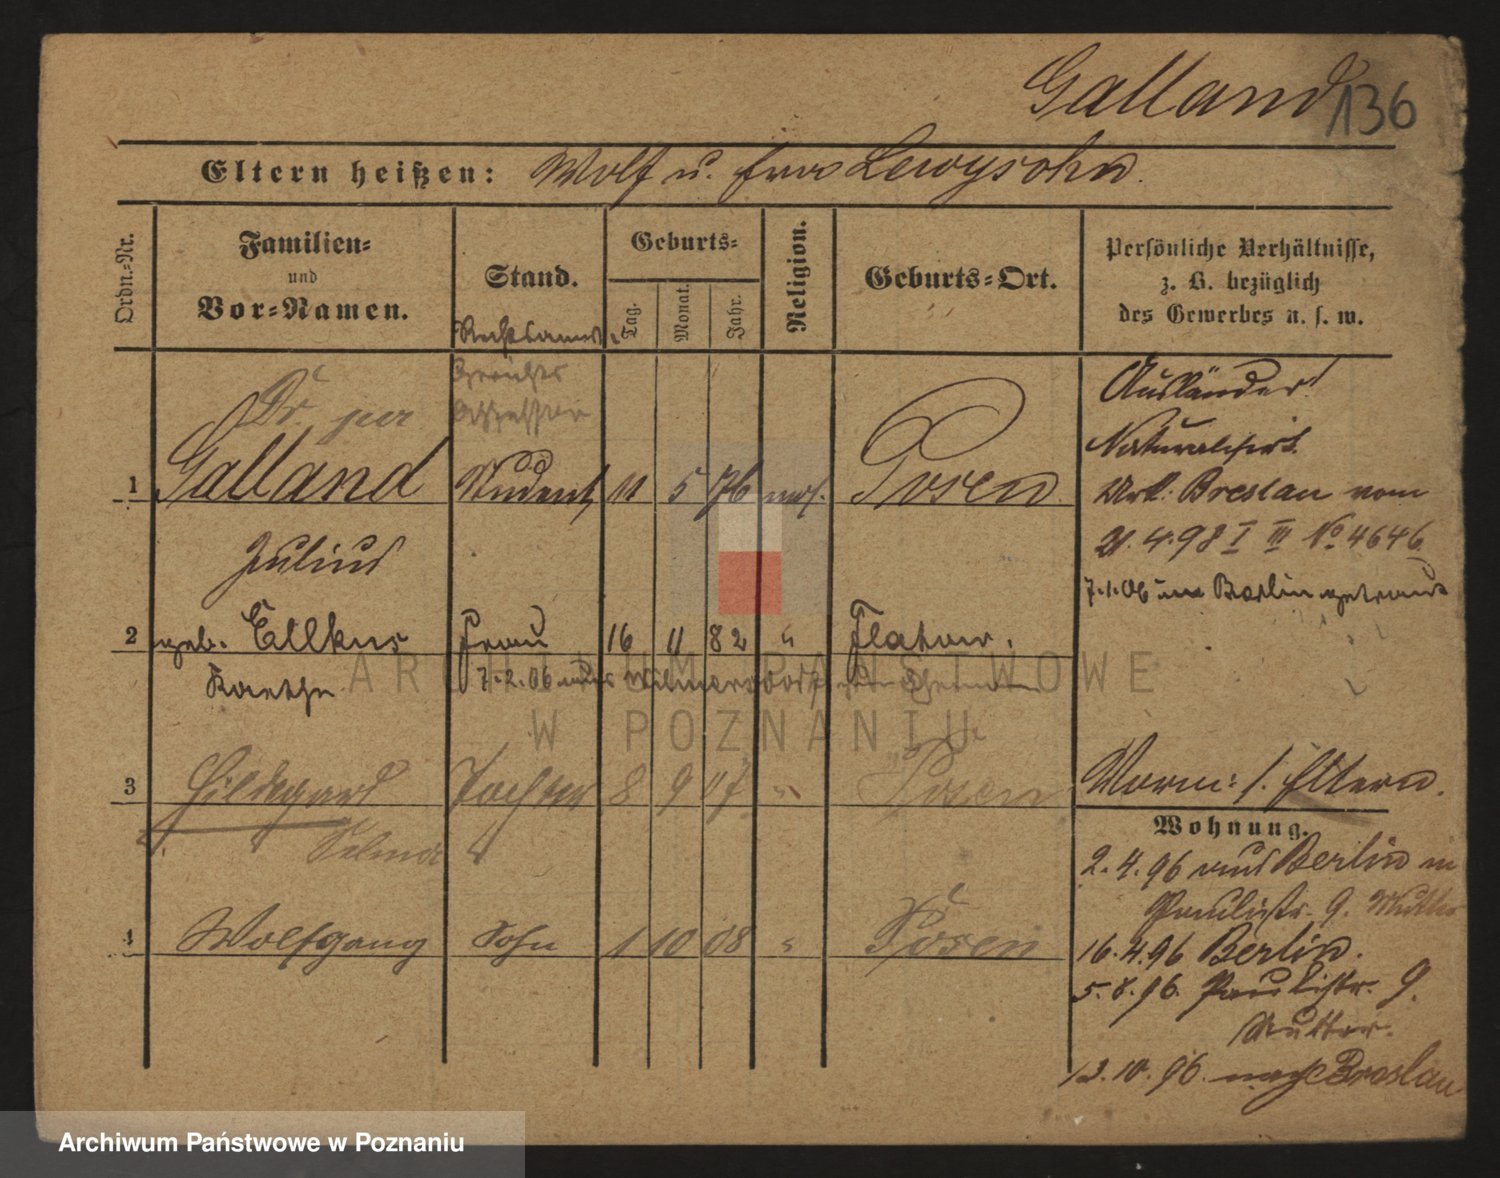 Galland 136
Eltern heißen: Wolf u. Lewysohn.
Ordn.-Nr.
Familien-
und
Vor-Namen.
Stand.
Geburts-
Tag.
Monat.
Jahr.
Religion.
Geburts-Ort.
Persönliche Verhältnisse,
z. B. bezüglich
des Gewerbes u. s. w.
Rechtsanw.
Gerichts
Assessor
Dr jur
1 Galland Student 11 5 76 mos. Posen
Julius
Ausländer!
Naturalisirt.
Urk: Breslau vom
21.4.98 I III No 4646
7.1.06 in Berlin getraut
2 geb. Ellkus Frau 16 11 82 " Flatow.
Kaethe
7.2.06 aus Wilmersdorf
3 Hildegard Tochter 8 9 07 " Posen
Selma
Vorm: s. Eltern.
4 Wolfgang Sohn 1 10 08 " Posen
Wohnung.
2.4.96 aus Berlin in
Paulistr. 9. Mutter
16.4.96 Berlin.
5.8.96. Paulistr. 9.
Mutter.
13.10.96. nach Breslau
ARCHIWUM PAŃSTWOWE
W POZNANIU
Archiwum Państwowe w Poznaniu